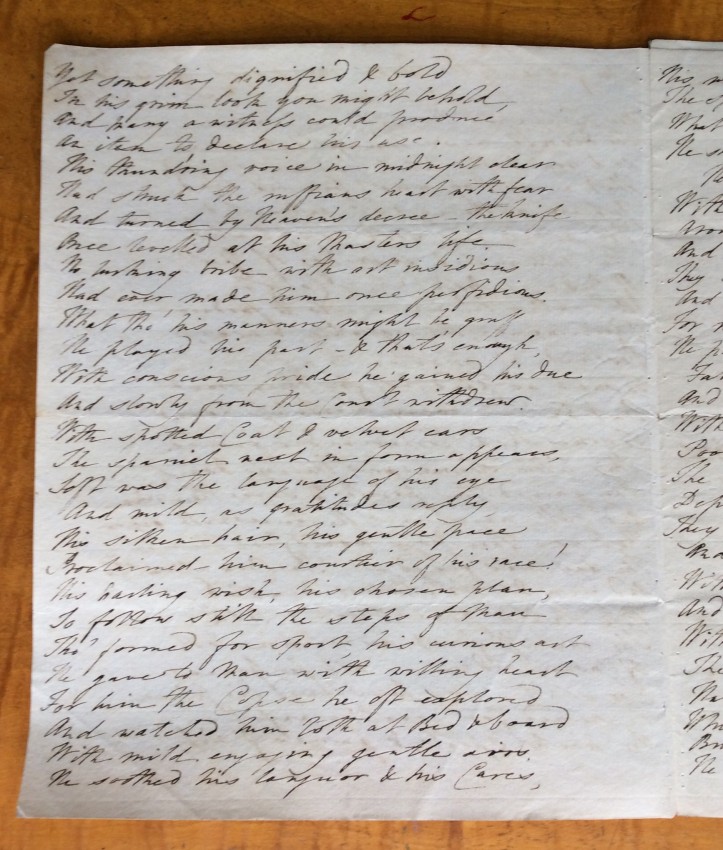 Yet something dignified & bold
In his grim look you might behold,
And many a witness could produce
An item to declare his use.
His thund'ring voice in midnight clear
Had struck the ruffians heart with fear
And turned by Heaven's decree - the knife
Once levelled at his Masters life
No lurking bribe with art insidious
Had ever made him once perfidious.
What tho' his manners might be gruff
He played his part - & that's enough,
With conscious pride he gained his due
And slowly from the Court withdrew.
With spotted Coat & velvet ears
The spaniel next in form appears,
Soft was the language of his eye
And mild, as gratitudes reply
His silken hair, his gentle pace
Proclaimed him courtier of his race!
His darling wish, his chosen plan,
To follow still the steps of Man
Tho' formed for sport, his curious art
He gave to Man with willing heart
For him the Copse he oft explored
And watched him both at Bed & board
With mild engaging gentle airs.
He soothed his languor & his Cares,
His
The
What
He
With
And
They
And
For
He
And
With
Poor
The
They
And
With
The
He